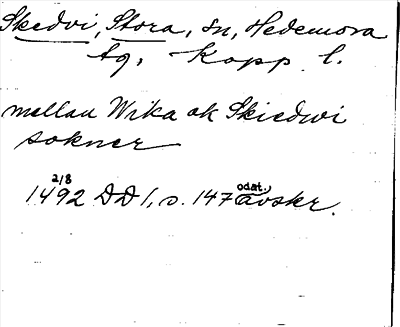 Skedvi, Stora, sn, Hedemora
tg, Kopp. l.
mellan Wika ok Skiedwi
sokner
2/8
1492 DD 1, s. 147 avskr.
odat.